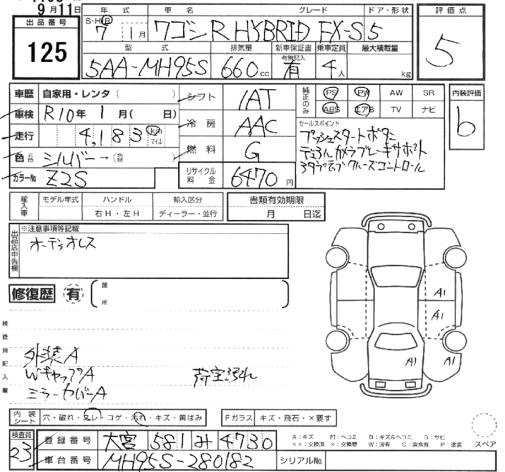 9月11日
出品番号
125
年式 車名 グレード ドア・形状
S・H・R 7年 1月 ワゴンR HYBRID FX-S 5
型式 排気量 新車保証書 乗車定員 最大積載量
5AA-MH95S 660cc 有 4人 kg
評価点
5
車歴 自家用・レンタ( )
車検 R10年 1月( 日)
走行 4,183 km マイル
色 シルバー→
カラーNo Z2S
シフト 1AT
冷房 AAC
燃料 G
リサイクル料金 6470円
純正のみ PS PW AW SR
ABS エアB TV ナビ
セールスポイント
プッシュスタートボタン
デュアルカメラブレーキサポート
アダプティブクルーズコントロール
内装評価
b
輸入車 モデル年式 ハンドル 輸入区分
右H・左H ディーラー・並行
書類有効期限
月 日迄
出品店申告欄
※注意事項等記載
オーディオレス
修復歴 有 箇所
検査員記入欄
外装A
WキャップA
ミラーカバーA
荷室汚れ
A1
A1
A1
内装シート 穴・破れ・スレ・コゲ・汚れ・キズ・黄ばみ
Fガラス キズ・飛石・×要す
検査員
23
登録番号 大宮 581 み 4730
車台番号 MH95S-280182
シリアルNo.
A:キズ M:ヘコミ B:キズ&ヘコミ S:サビ
スペア